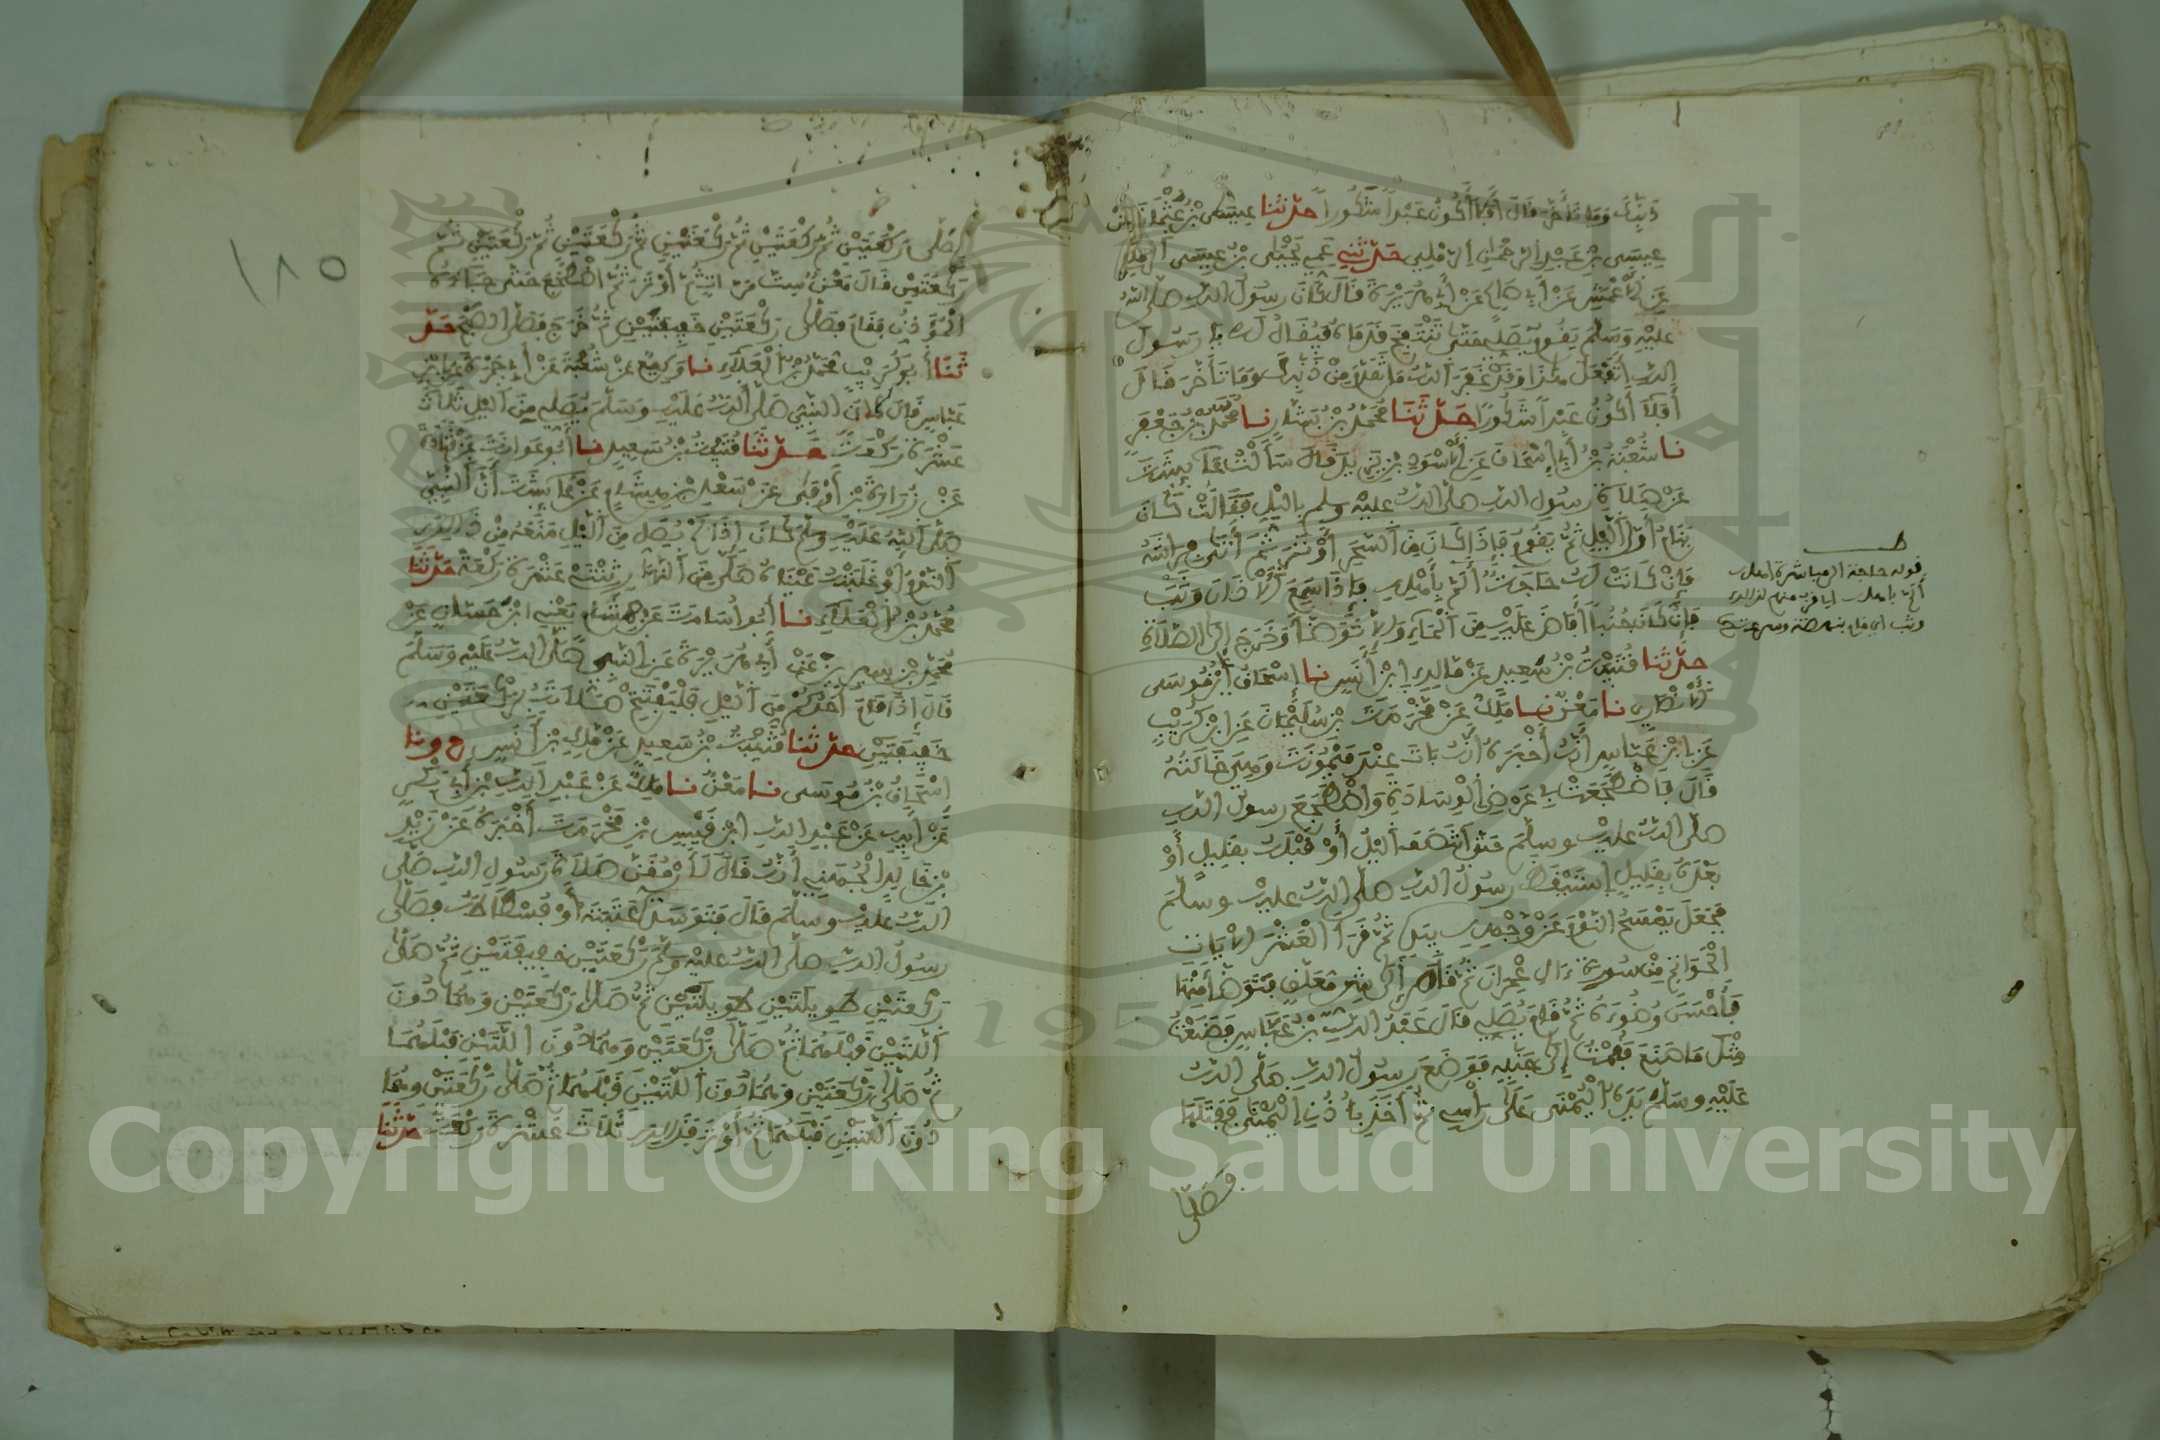 ذنبك وما تأخر قال أفلا أكون عبدا شكورا حدثنا عيسى بن عثمان بن
عيسى بن عبد الرحمن الرملي حدثني عمي يحيى بن عيسى الرملي
عن الأعمش عن أبي صالح عن أبي هريرة قال كان رسول الله صلى الله
عليه وسلم يقوم يصلي حتى تنتفخ قدماه فيقال له يا رسول
الله أتفعل هذا وقد غفر الله ما تقدم من ذنبك وما تأخر قال
أفلا أكون عبدا شكورا حدثنا محمد بن بشار نا محمد بن جعفر
نا شعبة بن أبي إسحاق عن الأسود بن يزيد قال سألت عائشة
عن صلاة رسول الله صلى الله عليه وسلم بالليل فقالت كان
ينام أول الليل ثم يقوم فإذا كان من السحر أوتر ثم أتى فراشه
فإن كانت له حاجة ألم بأهله فإذا سمع الأذان وثب
فإن كان جنبا أفاض عليه من الماء وإلا توضأ وخرج إلى الصلاة
حدثنا قتيبة بن سعيد عن مالك ابن أنس نا إسحاق بن موسى
الأنصاري نا معن نا ملك عن مخرمة بن سليمان عن ابن كريب
عن ابن عباس أنه أخبره أنه بات عند ميمونة وهي خالته
قال فاضطجعت في عرض الوسادة واضطجع رسول الله
صلى الله عليه وسلم حتى انتصف الليل أو قبله بقليل أو
بعده بقليل استيقظ رسول الله صلى الله عليه وسلم
فجعل يمسح النوم عن وجهه بيده ثم قرأ العشر الآيات
الخواتم من سورة ءال عمران ثم قام إلى شن معلق فتوضأ منها
فأحسن وضوءه ثم قام يصلي قال عبد الله بن عباس فصنعت
مثل ما صنع فقمت إلى جنبه فوضع رسول الله صلى الله
عليه وسلم يده اليمنى على رأسي ثم أخذ بأذني اليمنى ففتلها
فصلى
قوله حاجة أي مباشرة أهله
ألم بأهله أي قرب منهم لذلك
وثب أي قام بنهضة وسرعة
١٨٥
فصلى ركعتين ثم ركعتين ثم ركعتين ثم ركعتين ثم ركعتين ثم
ركعتين قال معن ست مرات ثم أوتر ثم اضطجع حتى جاءه
المؤذن فقام فصلى ركعتين خفيفتين ثم خرج فصلى الصبح حد
ثنا أبو كريب محمد بن العلاء نا وكيع عن شعبة عن أبي جمرة عن ابن
عباس قال كان النبي صلى الله عليه وسلم يصلي من الليل ثلاث
عشرة ركعة حدثنا قتيبة بن سعيد نا أبو عوانة عن قتادة
عن زرارة بن أوفى عن سعد بن هشام عن عائشة أن النبي
صلى الله عليه وسلم كان إذا لم يصل من الليل منعه من ذلك
النوم أو غلبته عيناه صلى من النهار ثنتي عشرة ركعة حدثنا
محمد بن العلاء نا أبو أسامة عن هشام يعني ابن حسان عن
محمد بن سيرين عن أبي هريرة عن النبي صلى الله عليه وسلم
قال إذا قام أحدكم من الليل فليفتتح صلاته بركعتين
خفيفتين حدثنا قتيبة بن سعيد عن ملك بن أنس ح ونا
إسحاق بن موسى نا معن نا ملك عن عبد الله بن أبي بكر
عن أبيه عن عبد الله ابن قيس بن مخرمة أخبره عن زيد
بن خالد الجهني أنه قال لأرمقن صلاة رسول الله صلى
الله عليه وسلم قال فتوسدت عتبته أو فسطاطه فصلى
رسول الله صلى الله عليه وسلم ركعتين خفيفتين ثم صلى
ركعتين طويلتين طويلتين ثم صلى ركعتين وهما دون
اللتين قبلهما ثم صلى ركعتين وهما دون اللتين قبلهما
ثم صلى ركعتين وهما دون اللتين قبلهما ثم صلى ركعتين وهما
دون اللتين قبلهما ثم أوتر فذلك ثلاث عشرة ركعة حدثنا
1957
Copyright © King Saud University